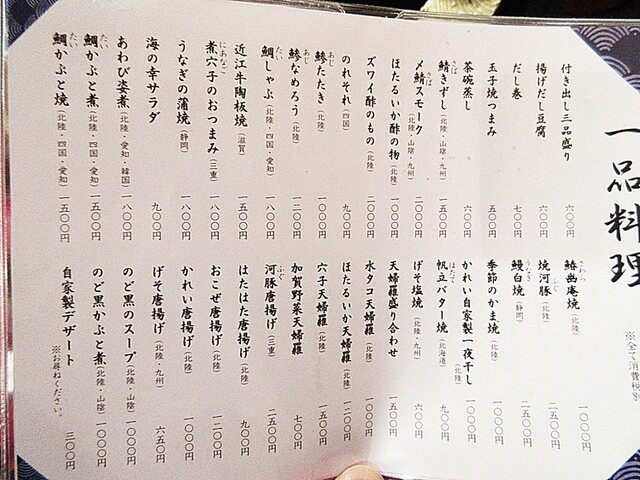 一品料理
※全て消費税別
付き出し三品盛り 六〇〇円
揚げだし豆腐 六〇〇円
だし巻 七〇〇円
玉子焼つまみ 五〇〇円
茶碗蒸し 六〇〇円
鯖きずし(北陸・山陰・九州) 一五〇〇円
〆鯖スモーク(北陸・山陰・九州) 二〇〇〇円
ほたるいか酢の物(北陸) 一〇〇〇円
ズワイ酢のもの(北陸) 二〇〇〇円
のれそれ(四国) 九〇〇円
鯵たたき(北陸) 一〇〇〇円
鯵なめろう(北陸) 一二〇〇円
鯛しゃぶ(北陸・四国・愛知) 一八〇〇円
近江牛陶板焼(滋賀) 一五〇〇円
煮穴子のおつまみ(三重) 一八〇〇円
うなぎの蒲焼(静岡) 一八〇〇円
海の幸サラダ 九〇〇円
あわび姿煮(北陸・愛知・韓国) 一八〇〇円
鯛かぶと煮(北陸・四国・愛知) 一五〇〇円
鯛かぶと焼(北陸・四国・愛知) 一五〇〇円
鰆幽庵焼(北陸) 一〇〇〇円
焼河豚(北陸) 二五〇〇円
鰻白焼(静岡) 二五〇〇円
季節のかま焼(北陸) 一〇〇〇円
かれい自家製一夜干し(北陸) 一〇〇〇円
帆立バター焼(北海道) 九〇〇円
げそ塩焼(北陸・九州) 六〇〇円
天婦羅盛り合わせ 一五〇〇円
水タコ天婦羅(北陸) 一〇〇〇円
ほたるいか天婦羅(北陸) 一二〇〇円
穴子天婦羅(北陸) 一五〇〇円
加賀野菜天婦羅 七〇〇円
河豚唐揚げ(三重) 二五〇〇円
はたはた唐揚げ(北陸) 九〇〇円
おこぜ唐揚げ(北陸) 一二〇〇円
かれい唐揚げ(北陸) 一〇〇〇円
げそ唐揚げ(北陸・九州) 六五〇円
のど黒のスープ(北陸・山陰) 一〇〇〇円
のど黒かぶと煮(北陸・山陰) 一〇〇〇円
自家製デザート ※お尋ねください。 三〇〇円